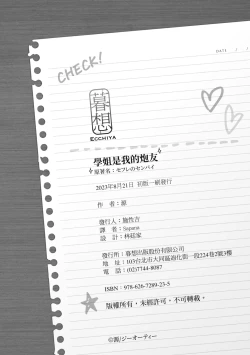 DATE
CHECK!
暮想
ECCHIYA
學姐是我的炮友
原著名:セフレのセンパイ
2023年8月21日 初版一刷發行
作 者:源
發行人:施性吉
譯 者:Sapano
設 計:林廷家
發行所:暮想出版股份有限公司
地 址:103台北市大同區迪化街一段224巷2號3樓
電 話:(02)7744-8087
ISBN:978-626-7289-23-5
版權所有・未經許可・不可轉載。
©源/ジーオーティー